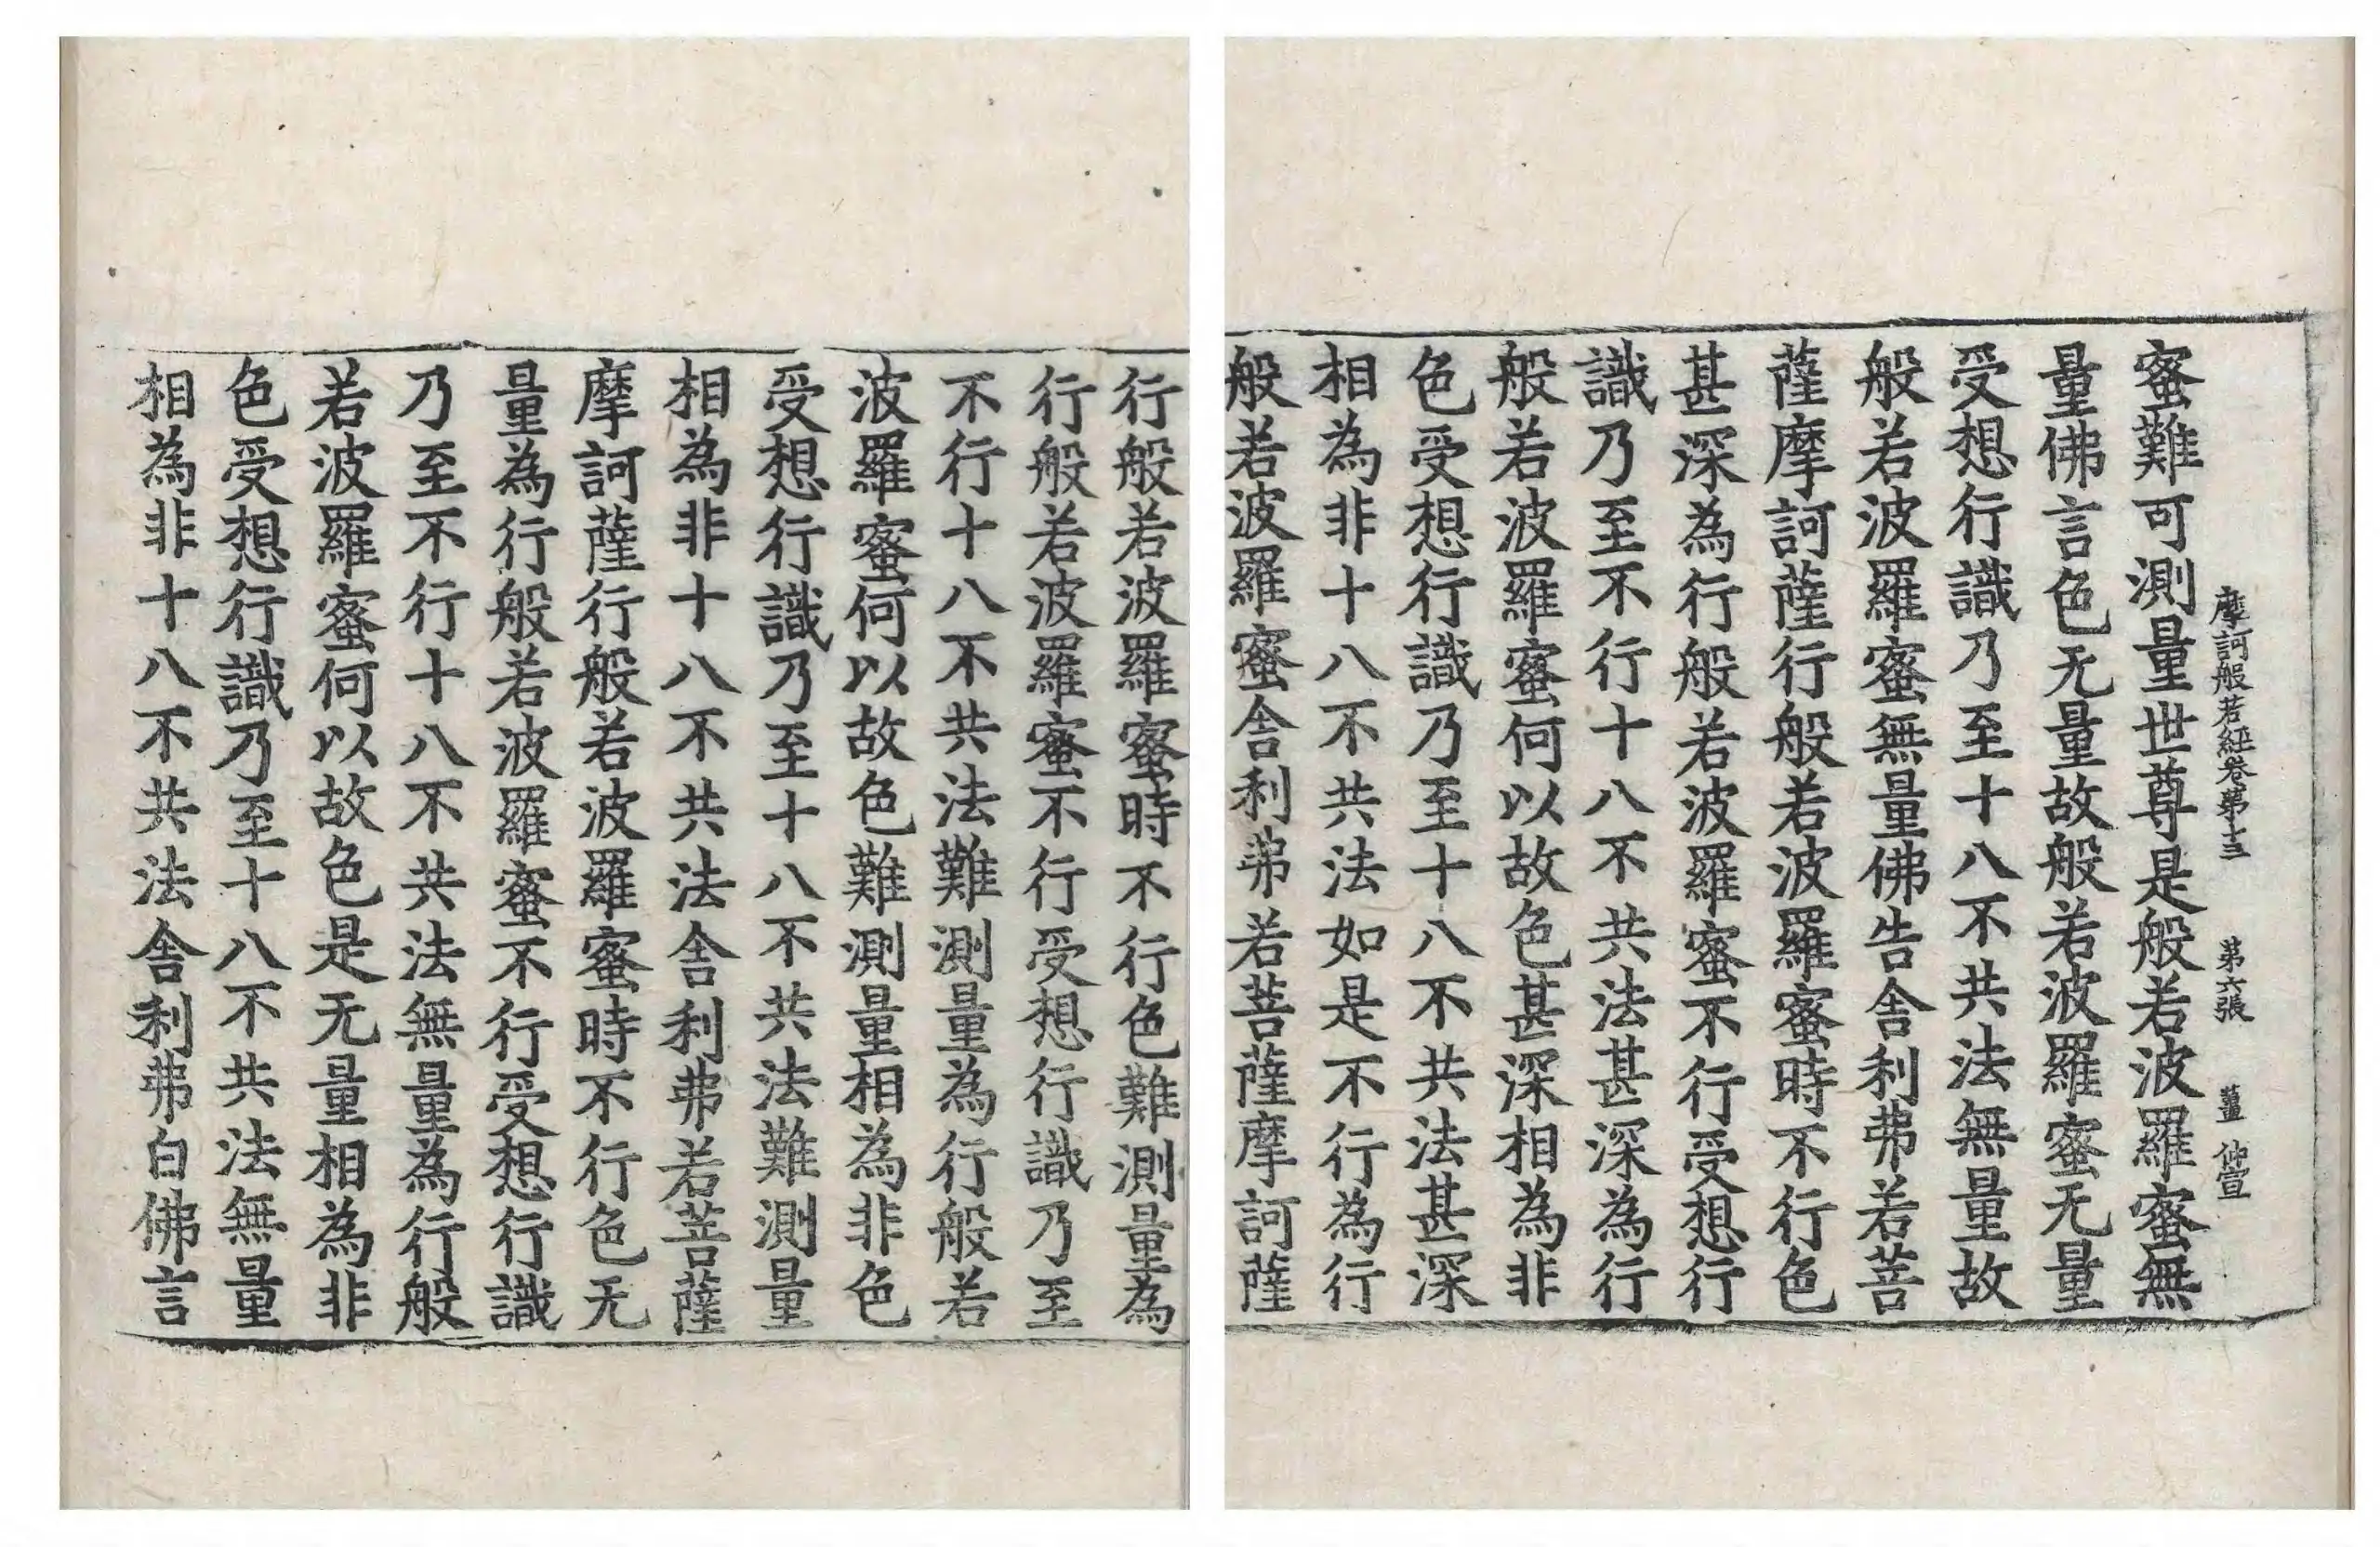 摩訶般若經卷第十三 第六張 薑 仲宣
蜜難可測量世尊是般若波羅蜜無
量佛言色无量故般若波羅蜜无量
受想行識乃至十八不共法無量故
般若波羅蜜無量佛告舍利弗若菩
薩摩訶薩行般若波羅蜜時不行色
甚深為行般若波羅蜜不行受想行
識乃至不行十八不共法甚深為行
般若波羅蜜何以故色甚深相為非
色受想行識乃至十八不共法甚深
相為非十八不共法如是不行為行
般若波羅蜜舍利弗若菩薩摩訶薩
行般若波羅蜜時不行色難測量為
行般若波羅蜜不行受想行識乃至
不行十八不共法難測量為行般若
波羅蜜何以故色難測量相為非色
受想行識乃至十八不共法難測量
相為非十八不共法舍利弗若菩薩
摩訶薩行般若波羅蜜時不行色无
量為行般若波羅蜜不行受想行識
乃至不行十八不共法無量為行般
若波羅蜜何以故色是无量相為非
色受想行識乃至十八不共法無量
相為非十八不共法舍利弗白佛言